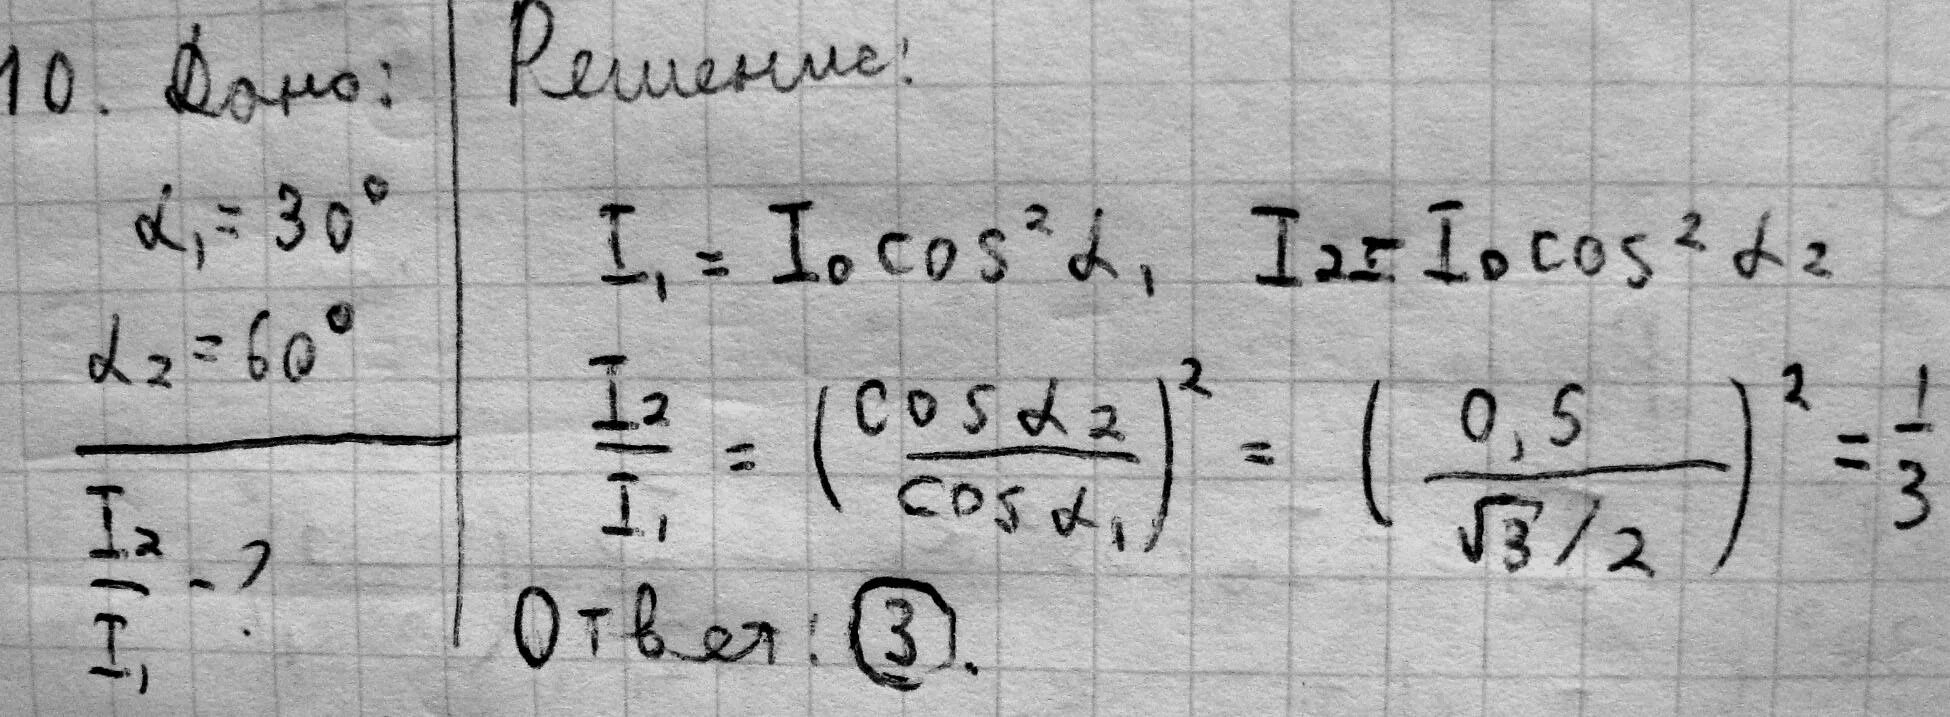 10. Дано:
α₁ = 30°
α₂ = 60°
I₂/I₁ - ?
Решение:
I₁ = I₀ cos² α₁   I₂ = I₀ cos² α₂
I₂/I₁ = (cos α₂ / cos α₁)² = (0,5 / √3/2)² = 1/3
Ответ: 3.